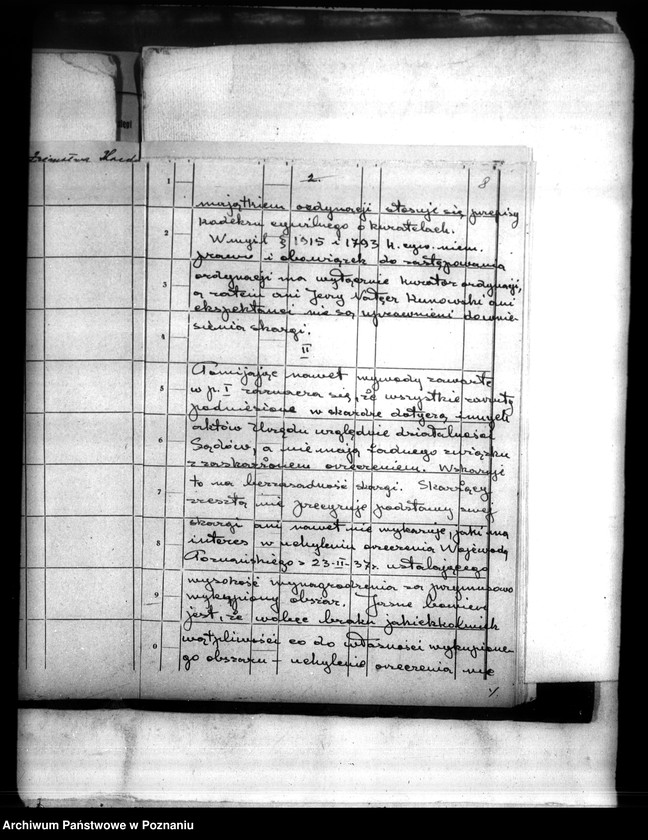 2.
8
majątkiem ordynacji stosuje się przepisy
kodeksu cywilnego o kuratelach.
W myśl § 1915 i 1793 k. cyw. niem.
prawo i obowiązek do zastępowania
ordynacji ma wyłącznie kurator ordynacji,
a zatem ani Jerzy Kunowski ani
ekspektanci nie są uprawnieni do wnie-
sienia skargi.
II
Pomijając nawet wywody zawarte
w p. I zaznacza się, że wszystkie zarzuty
podniesione w skardze dotyczą innych
aktów Urzędu względnie działalności
Sądów, a nie mają żadnego związku
z zaskarżonem orzeczeniem. Wskazuje
to na bezzasadność skargi. Skarżący
zresztą nie precyzuje podstawy swej
skargi ani nawet nie wykazuje, jaki ma
interes w uchyleniu orzeczenia Wojewody
Poznańskiego z 23-II-37 r. ustalającego
wysokość wynagrodzenia za przymusowo
wykupiony obszar. Jasne bowiem
jest, że wobec braku jakichkolwiek
wątpliwości co do własności wykupione-
go obszaru – uchylenie orzeczenia nie
1
2
3
4
5
6
7
8
9
0
Archiwum Państwowe w Poznaniu